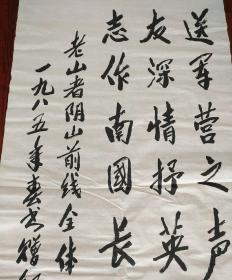 送军营之声
友深情抒英
志作南國长
老山者阴山前线全体
一九八五年春书赠